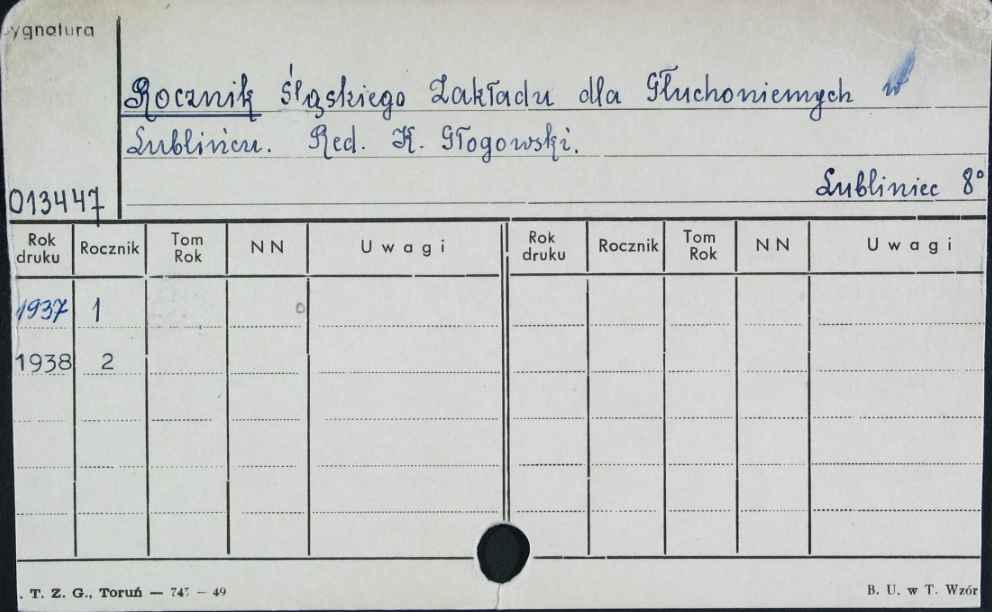 Sygnatura
Rocznik Śląskiego Zakładu dla Głuchoniemych w
Lublińcu. Red. K. Głogowski.
Lubliniec 8°
013447
Rok druku Rocznik Tom Rok NN Uwagi Rok druku Rocznik Tom Rok NN Uwagi
1937 1
1938 2
. T. Z. G., Toruń — 747 — 49
B. U. w T. Wzór